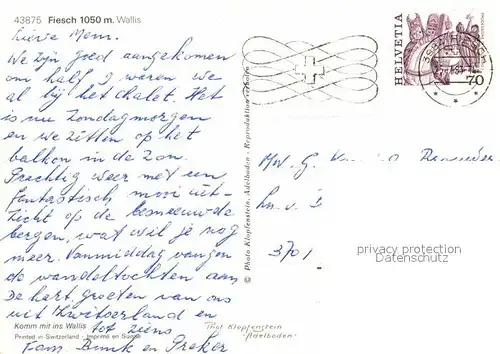 43875 Fiesch 1050 m. Wallis
Lieve Mem.
We zijn goed aangekomen
om half 1 waren we
al bij het chalet. Het
is nu Zondagmorgen
en we zitten op het
balkon in de zon.
Prachtig weer met een
fantastisch mooi uit-
zicht op de besneeuwde
bergen, wat wil je nog
meer. Vanmiddag vangen
de wandeltochten aan
De hart. groeten van ons
uit Zwitserland en
tot ziens
Fam.
Komm mit ins Wallis
Printed in Switzerland - Imprimé en Suisse
© Photo Klopfenstein, Adelboden - Reproduktion verboten
HELVETIA
70
FIESCH
Mw. G.
3701
privacy protection
Datenschutz
Phot Klopfenstein
Adelboden